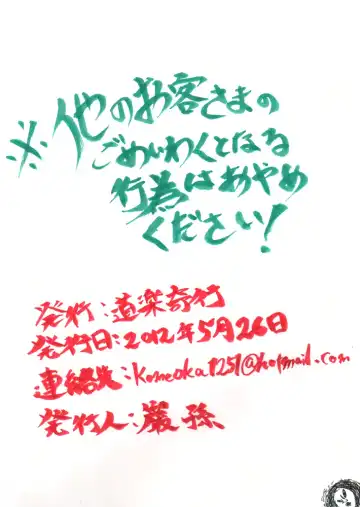 ※他のお客さまの
ごめいわくとなる
行為はおやめ
ください!
発行:道楽奇行
発行日:2012年5月26日
連絡先:Komeoka1251@hotmail.com
発行人:巌孫